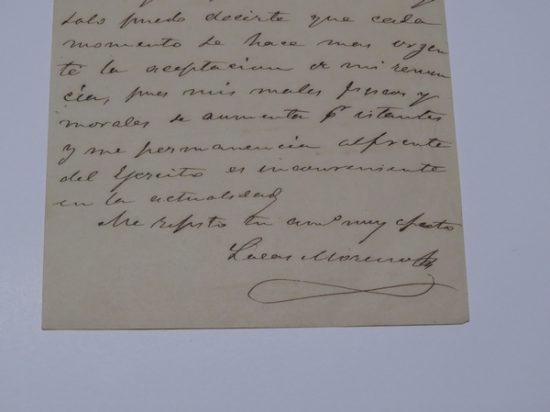 solo puedo decirte que cada
momento se hace mas urgen
te la aceptacion de mi renun
cia, pues mis males fisicos y
morales se aumenta pr istantes
y me permanencia al frente
del Ejercito es inconveniente
en la actualidad
Me repito tu amo muy afecto
Lucas Moreno